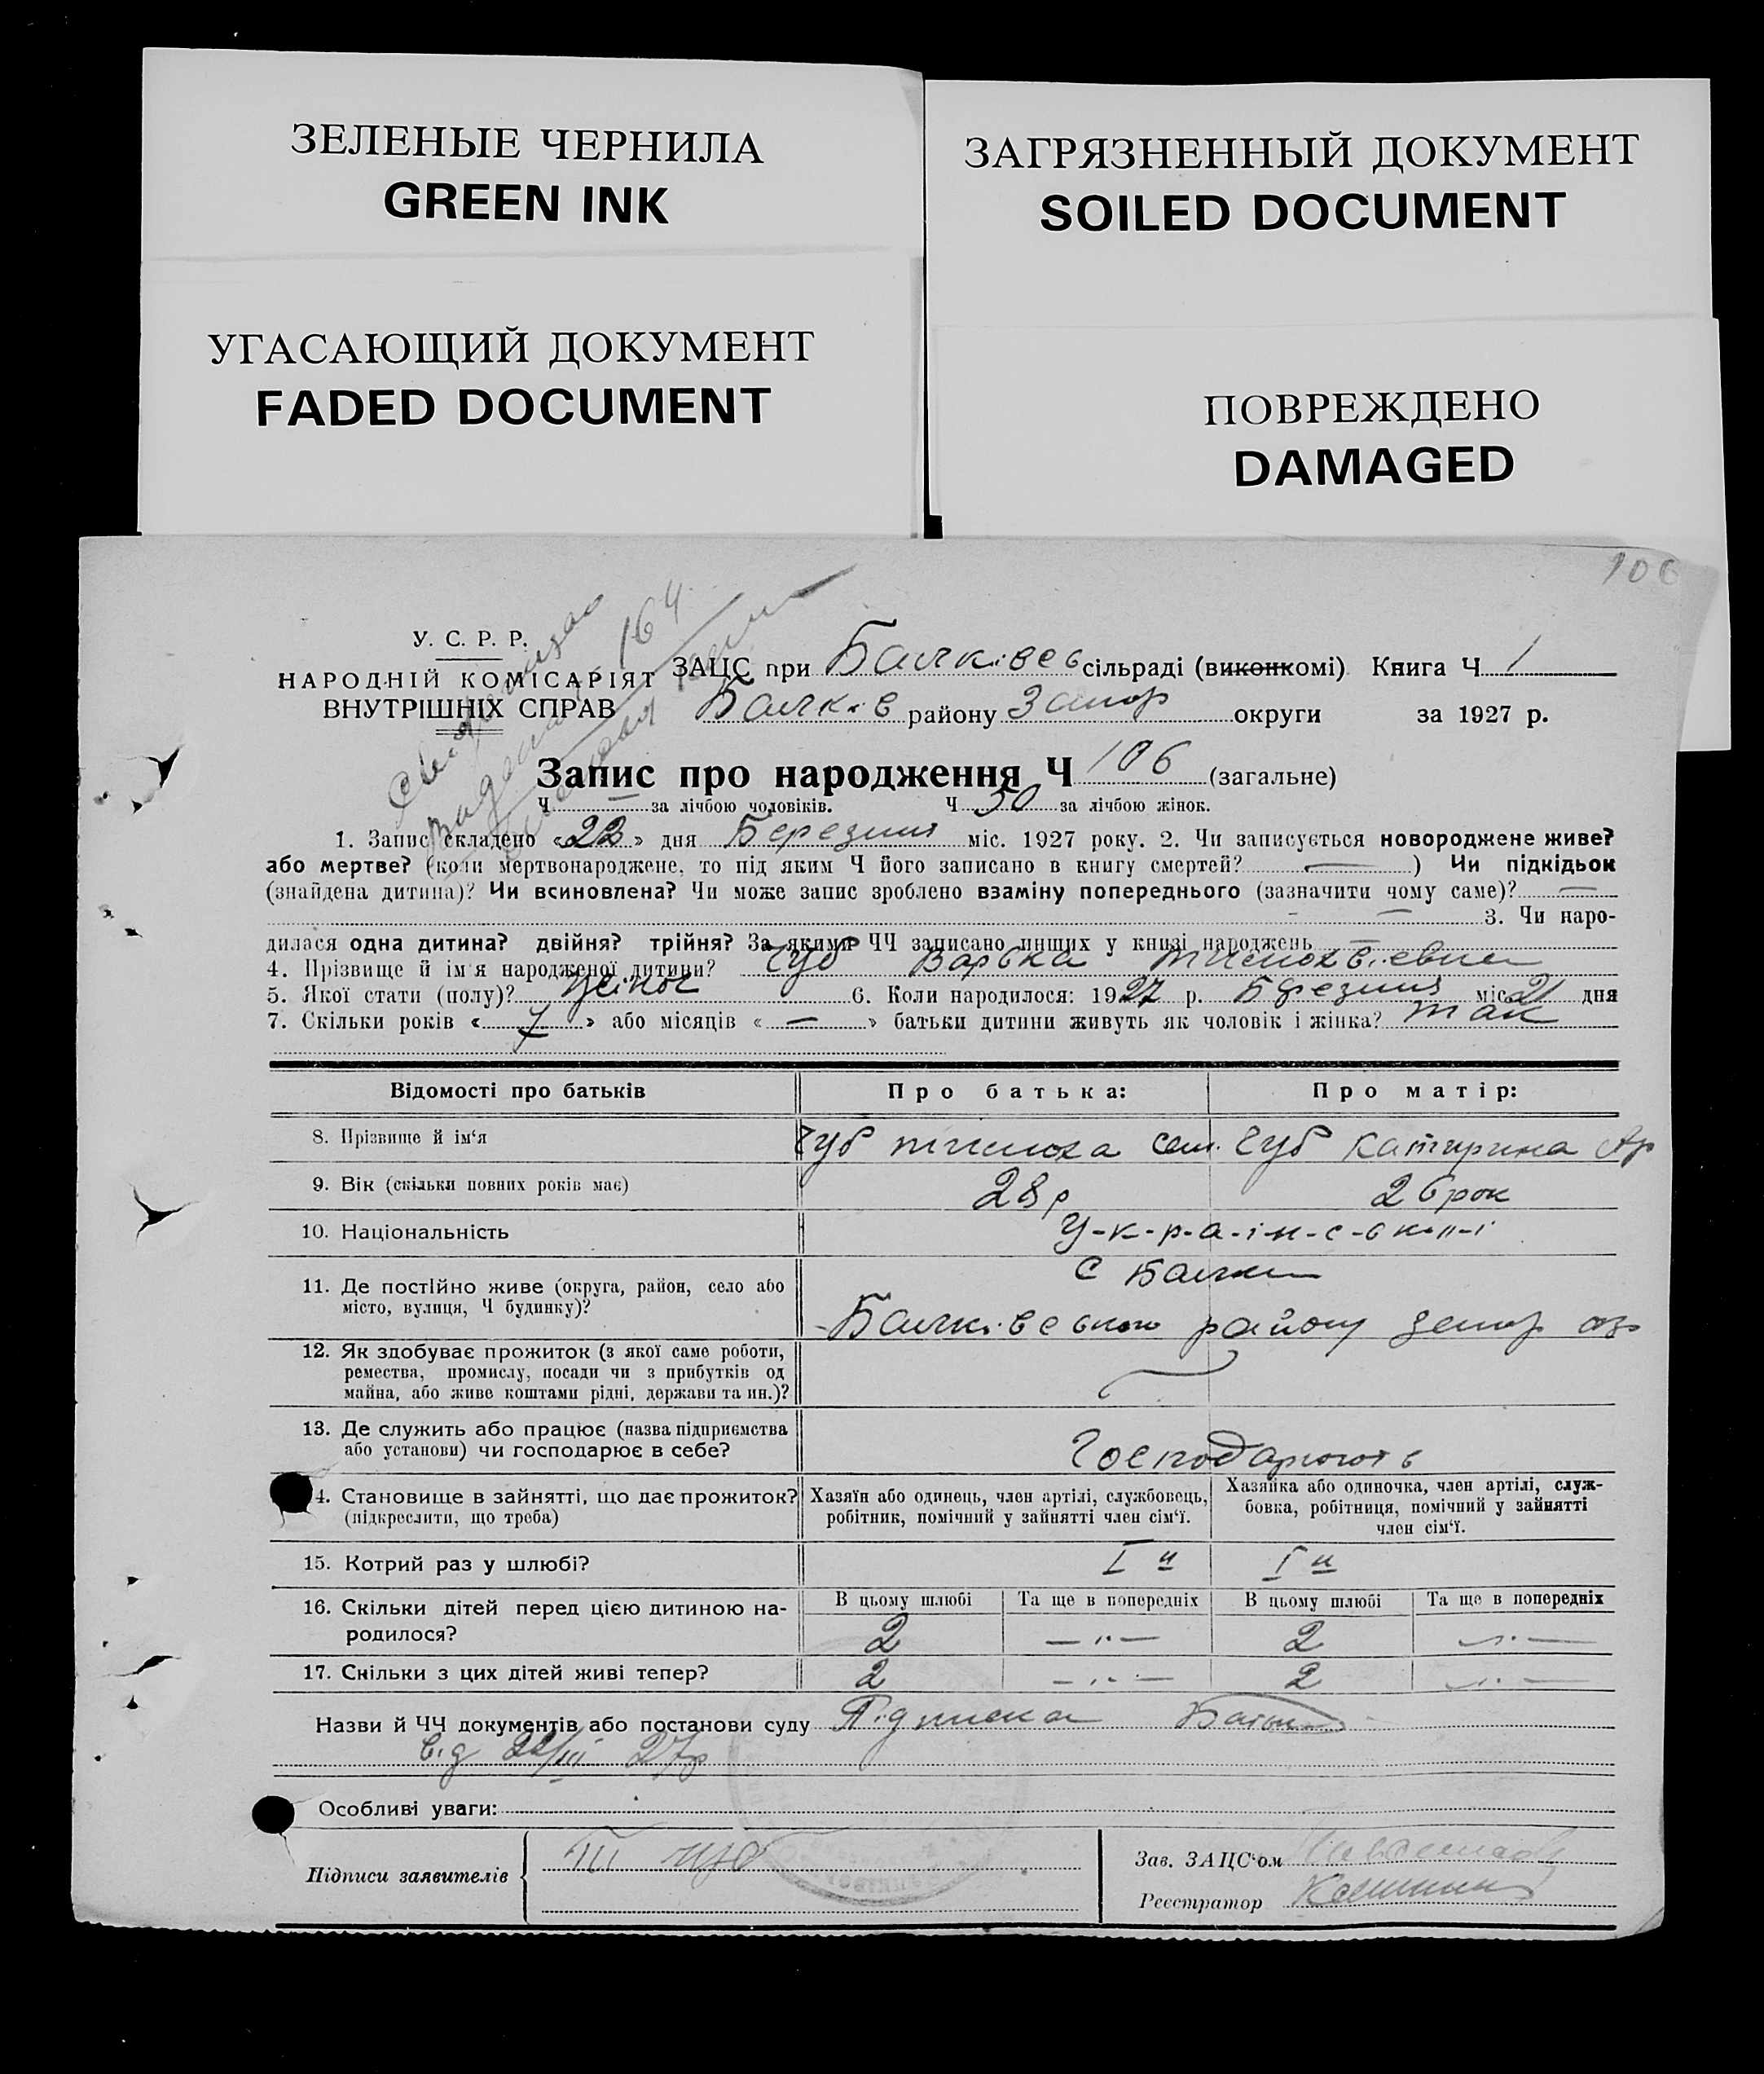 ЗЕЛЕНЫЕ ЧЕРНИЛА
GREEN INK
ЗАГРЯЗНЕННЫЙ ДОКУМЕНТ
SOILED DOCUMENT
УГАСАЮЩИЙ ДОКУМЕНТ
FADED DOCUMENT
ПОВРЕЖДЕНО
DAMAGED
106
164
У. С. Р. Р.
НАРОДНІЙ КОМІСАРІЯТ
ВНУТРІШНІХ СПРАВ
ЗАЦС при Балківсь сільраді (виконкомі) Книга Ч 1
Балків району Запор округи за 1927 р.
Запис про народження Ч 106 (загальне)
Ч — за лічбою чоловіків. Ч 50 за лічбою жінок.
1. Запис складено «22» дня Березиня міс. 1927 року. 2. Чи записується новороджене живе?
або мертве? (коли мертвонароджене, то під яким Ч його записано в книгу смертей? —) Чи підкідьок
(знайдена дитина)? Чи всиновлена? Чи може запис зроблено взаміну попереднього (зазначити чому саме)? —
— 3. Чи наро-
дилася одна дитина? двійня? трійня? За якими ЧЧ записано инших у книзі народжень —
4. Прізвище й ім'я народженої дитини? Чуб Варька Тимохвіевна
5. Якої стати (полу)? жіноч 6. Коли народилося: 1927 р. Березиня міс. 21 дня
7. Скільки років «7» або місяців «—» батьки дитини живуть як чоловік і жінка? так
Відомості про батьків Про батька: Про матір:
8. Прізвище й ім‘я Чуб Тимоха Сем. Чуб Катирина Ар
9. Вік (скільки повних років має) 28 р 26 рок
10. Національність У-к-р-а-ї-н-с-ь-к-і
11. Де постійно живе (округа, район, село або
місто, вулиця, Ч будинку)?
с Балки
Балківського району Запор окр
12. Як здобуває прожиток (з якої саме роботи,
ремества, промислу, посади чи з прибутків од
майна, або живе коштами рідні, держави та ин.)?
13. Де служить або працює (назва підприємства
або установи) чи господарює в себе?
Господарюють
4. Становище в зайнятті, що дає прожиток?
(підкреслити, що треба)
Хазяїн або одинець, член артілі, службовець,
робітник, помічний у зайнятті член сім‘ї.
Хазяйка або одиночка, член артілі, служ-
бовка, робітниця, помічний у зайнятті
член сім‘ї.
15. Котрий раз у шлюбі? I й I й
16. Скільки дітей перед цією дитиною на-
родилося?
В цьому шлюбі Та ще в попередніх В цьому шлюбі Та ще в попередніх
2 —"— 2 —"—
17. Скільки з цих дітей живі тепер? 2 —"— 2 —"—
Назви й ЧЧ документів або постанови суду Підписка Батька
від 22/III 27р
Особливі уваги:
Підписи заявителів Чуб
Зав. ЗАЦС‘ом
Реєстратор